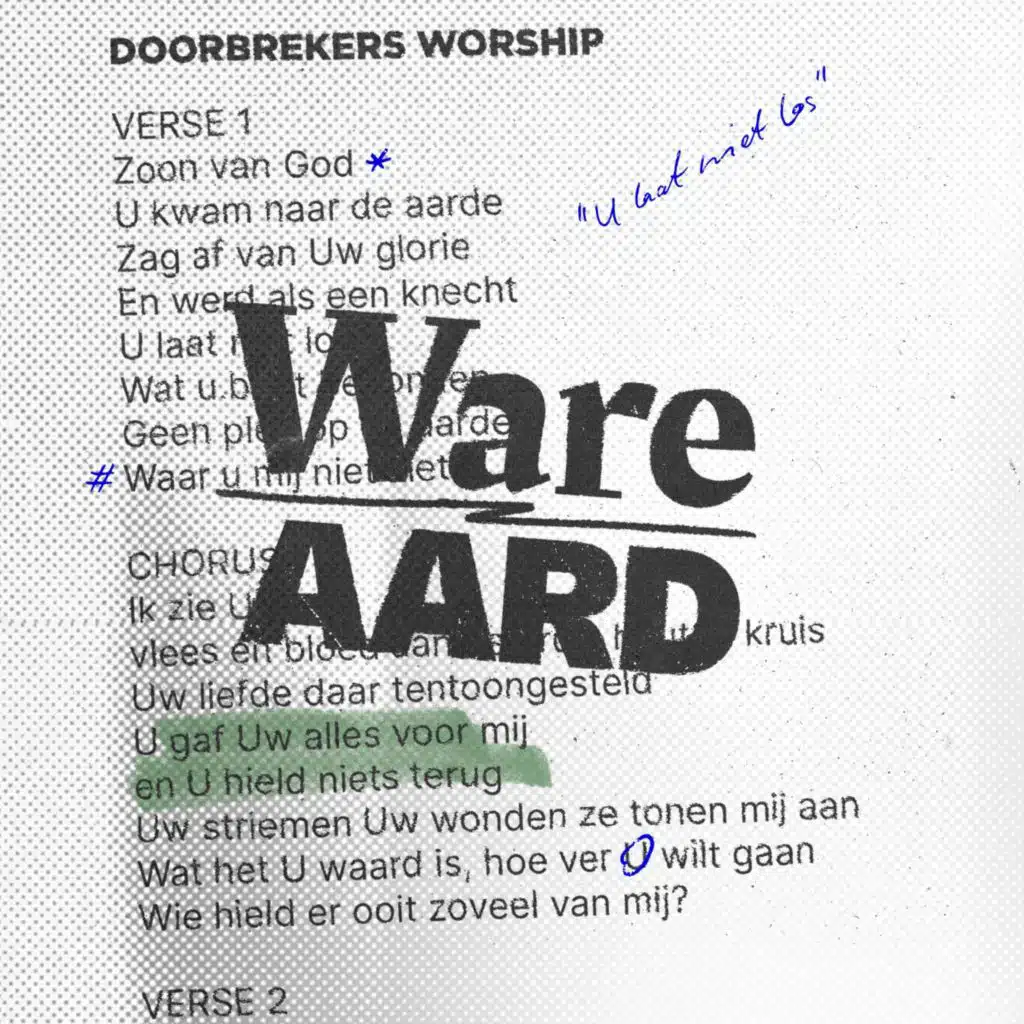 DOORBREKERS WORSHIP
VERSE 1
Zoon van God *
"U laat niet los"
U kwam naar de aarde
Zag af van Uw glorie
En werd als een knecht
U laat
Geen op
# Waar u mij niet
Ware
AARD
CHORUS
Ik zie U
vlees en bloed kruis
Uw liefde daar tentoongesteld
U gaf Uw alles voor mij
en U hield niets terug
Uw striemen Uw wonden ze tonen mij aan
Wat het U waard is, hoe ver U wilt gaan
Wie hield er ooit zoveel van mij?
VERSE 2